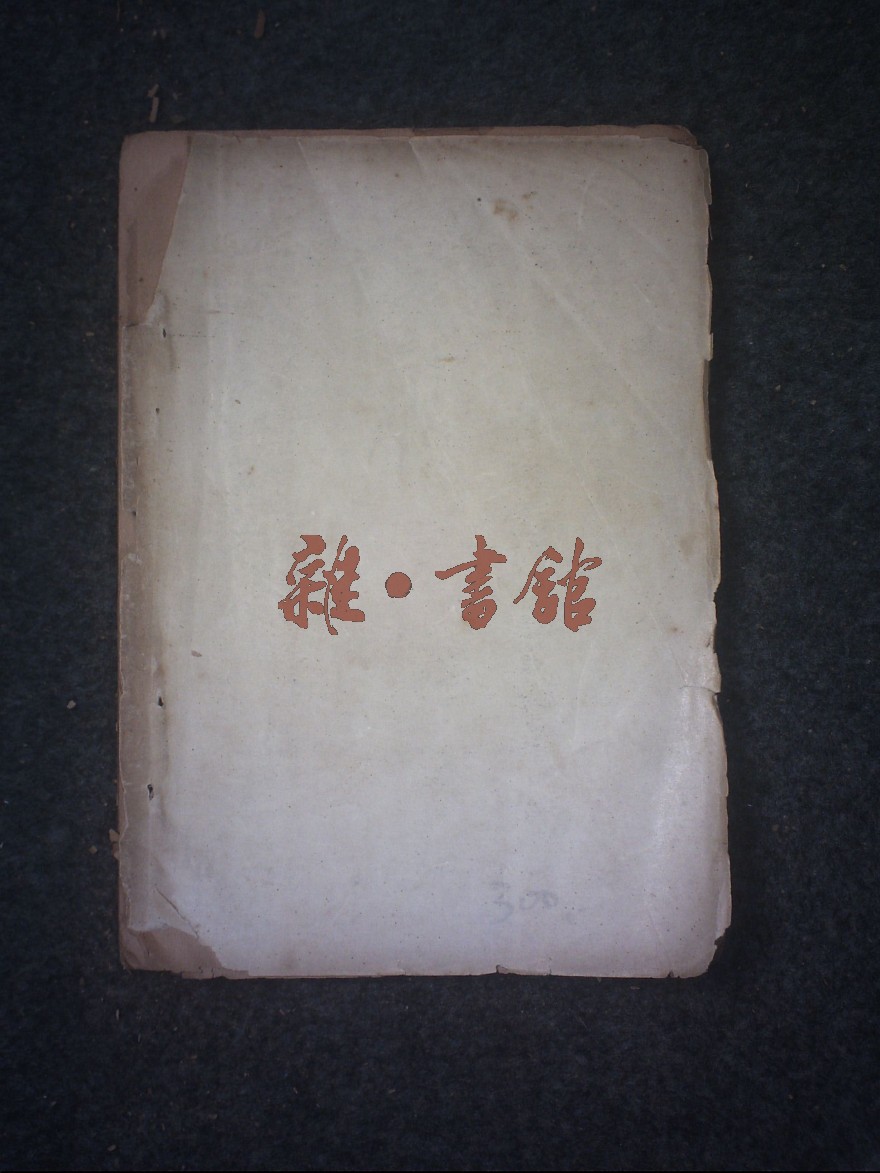 雜·書館
300